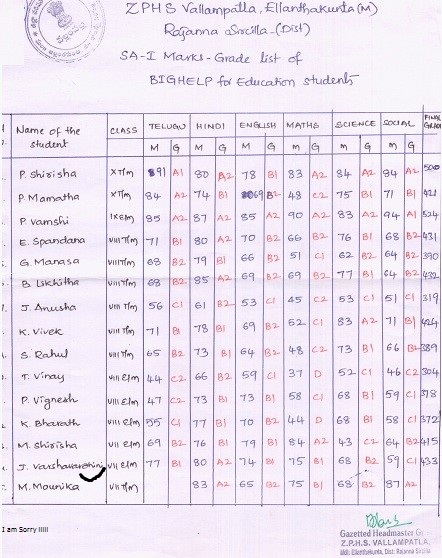 ZPHS Vallampatla, Ellanthakunta(M)
Rajanna Sircilla-(Dist)
SA-I Marks-Grade list of
BIGHELP for Education students
Name of the student CLASS TELUGU HINDI ENGLISH MATHS SCIENCE SOCIAL FINAL GRADE
M G M G M G M G M G M G
P. Shirisha X T/m 91 A1 80 A2 78 B1 83 A2 84 A2 84 A2 500
P. Mamatha X T/m 84 A2 74 B1 69 B2 48 C2 75 B1 71 B1 421
P. Vamshi IX E/m 85 A2 87 A2 85 A2 90 A2 83 A2 94 A1 524
E. Spandana VIII T/m 71 B1 80 A2 70 B2 66 B2 76 B1 68 B2 431
G. Manasa VIII T/m 68 B2 79 B1 66 B2 51 C1 62 B2 64 B2 390
B. Likhitha VIII T/m 68 B2 85 A2 69 B2 69 B2 77 B1 64 B2 432
J. Anusha VIII T/m 56 C1 61 B2 53 C1 45 C2 53 C1 51 C1 319
K. Vivek VIII T/m 71 B1 78 B1 69 B2 52 C1 83 A2 71 B1 424
S. Rahul VIII T/m 65 B2 73 B1 64 B2 48 C2 73 B1 66 B2 389
T. Vinay VIII E/m 44 C2 66 B2 59 C1 37 D 52 C1 46 C2 304
P. Vignesh VIII E/m 47 C2 73 B1 73 B1 58 C1 68 B1 59 C1 378
K. Bharath VIII E/m 55 C1 77 B1 70 B2 44 D 68 B1 58 C1 372
M. Shirisha VII E/m 69 B2 76 B1 79 B1 84 A2 43 C2 64 B2 415
J. Varshavardhini VII E/m 77 B1 80 A2 74 B1 75 B1 68 B2 59 C1 433
M. Mounika VII T/m 83 A2 65 B2 75 B1 68 B2 87 A2
I am Sorry lllll
Gazetted Headmaster G
Z.P.H.S. VALLAMPATLA,
Mdl: Ellanthakunta, Dist: Rajanna Sircilla